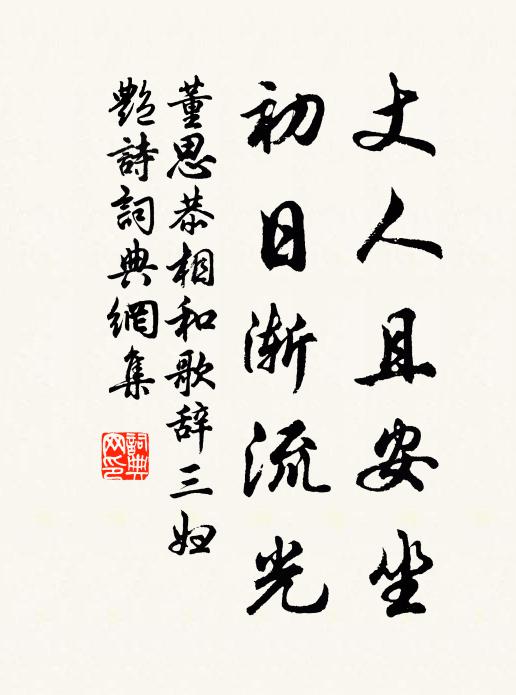 丈人且安坐
初日漸流光
董思恭相和歌辞三妇
艷詩詞典網集
詞典网印